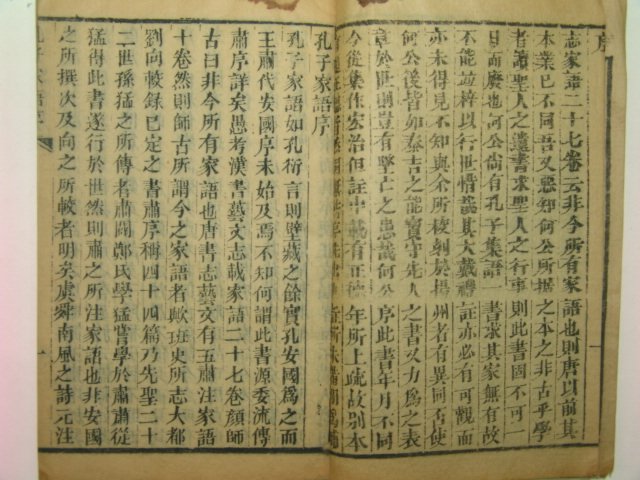 序
志家語二十七卷云非今所有家語也則唐以前其
本業已不同吾又惡知何公所據之本之非古乎學
者讀聖人之遺書求聖人之行事則此書國不可一
日而廢也何公尚有孔子集語一書求其家無有故
不能並梓以行世惜哉其大戴禮註亦必有可觀而
亦未得見不知與余所校刻於揚州者有異同否使
何公後皆如秦吉之能寶守先人之書又力爲之表
章於世則豈有墜亡之患哉何公序此書年月不同
今從集作宏治但註中載有正德年所上疏故別本
孔子家語序
孔子家語如孔衍言則壁藏之餘實孔安國爲之而
王肅代安國序未始及焉不知何謂此書源委流傳
肅序詳矣愚考漢書藝文志載家語二十七卷顏師
古曰非今所有家語也唐書志藝文有王肅注家語
十卷然則師古所謂今之家語者歟班史所志大都
劉向較錄已定之書肅序稱四十四篇乃先聖二十
二世孫猛之所傳者肅闢鄭氏學猛嘗學於肅肅從
猛得此書遂行於世然則肅之所注家語也非安國
之所撰次及向之所較者明矣虞舜南風之詩元注